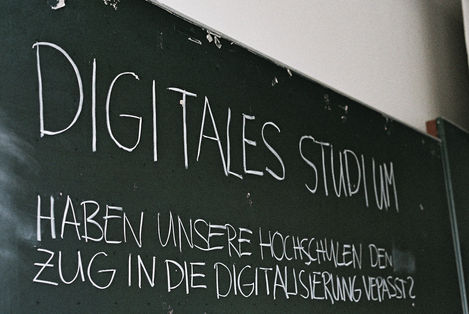 DIGITALES STUDIUM
HABEN UNSERE HOCHSCHULEN DEN
ZUG IN DIE DIGITALISIERUNG VEPASST?